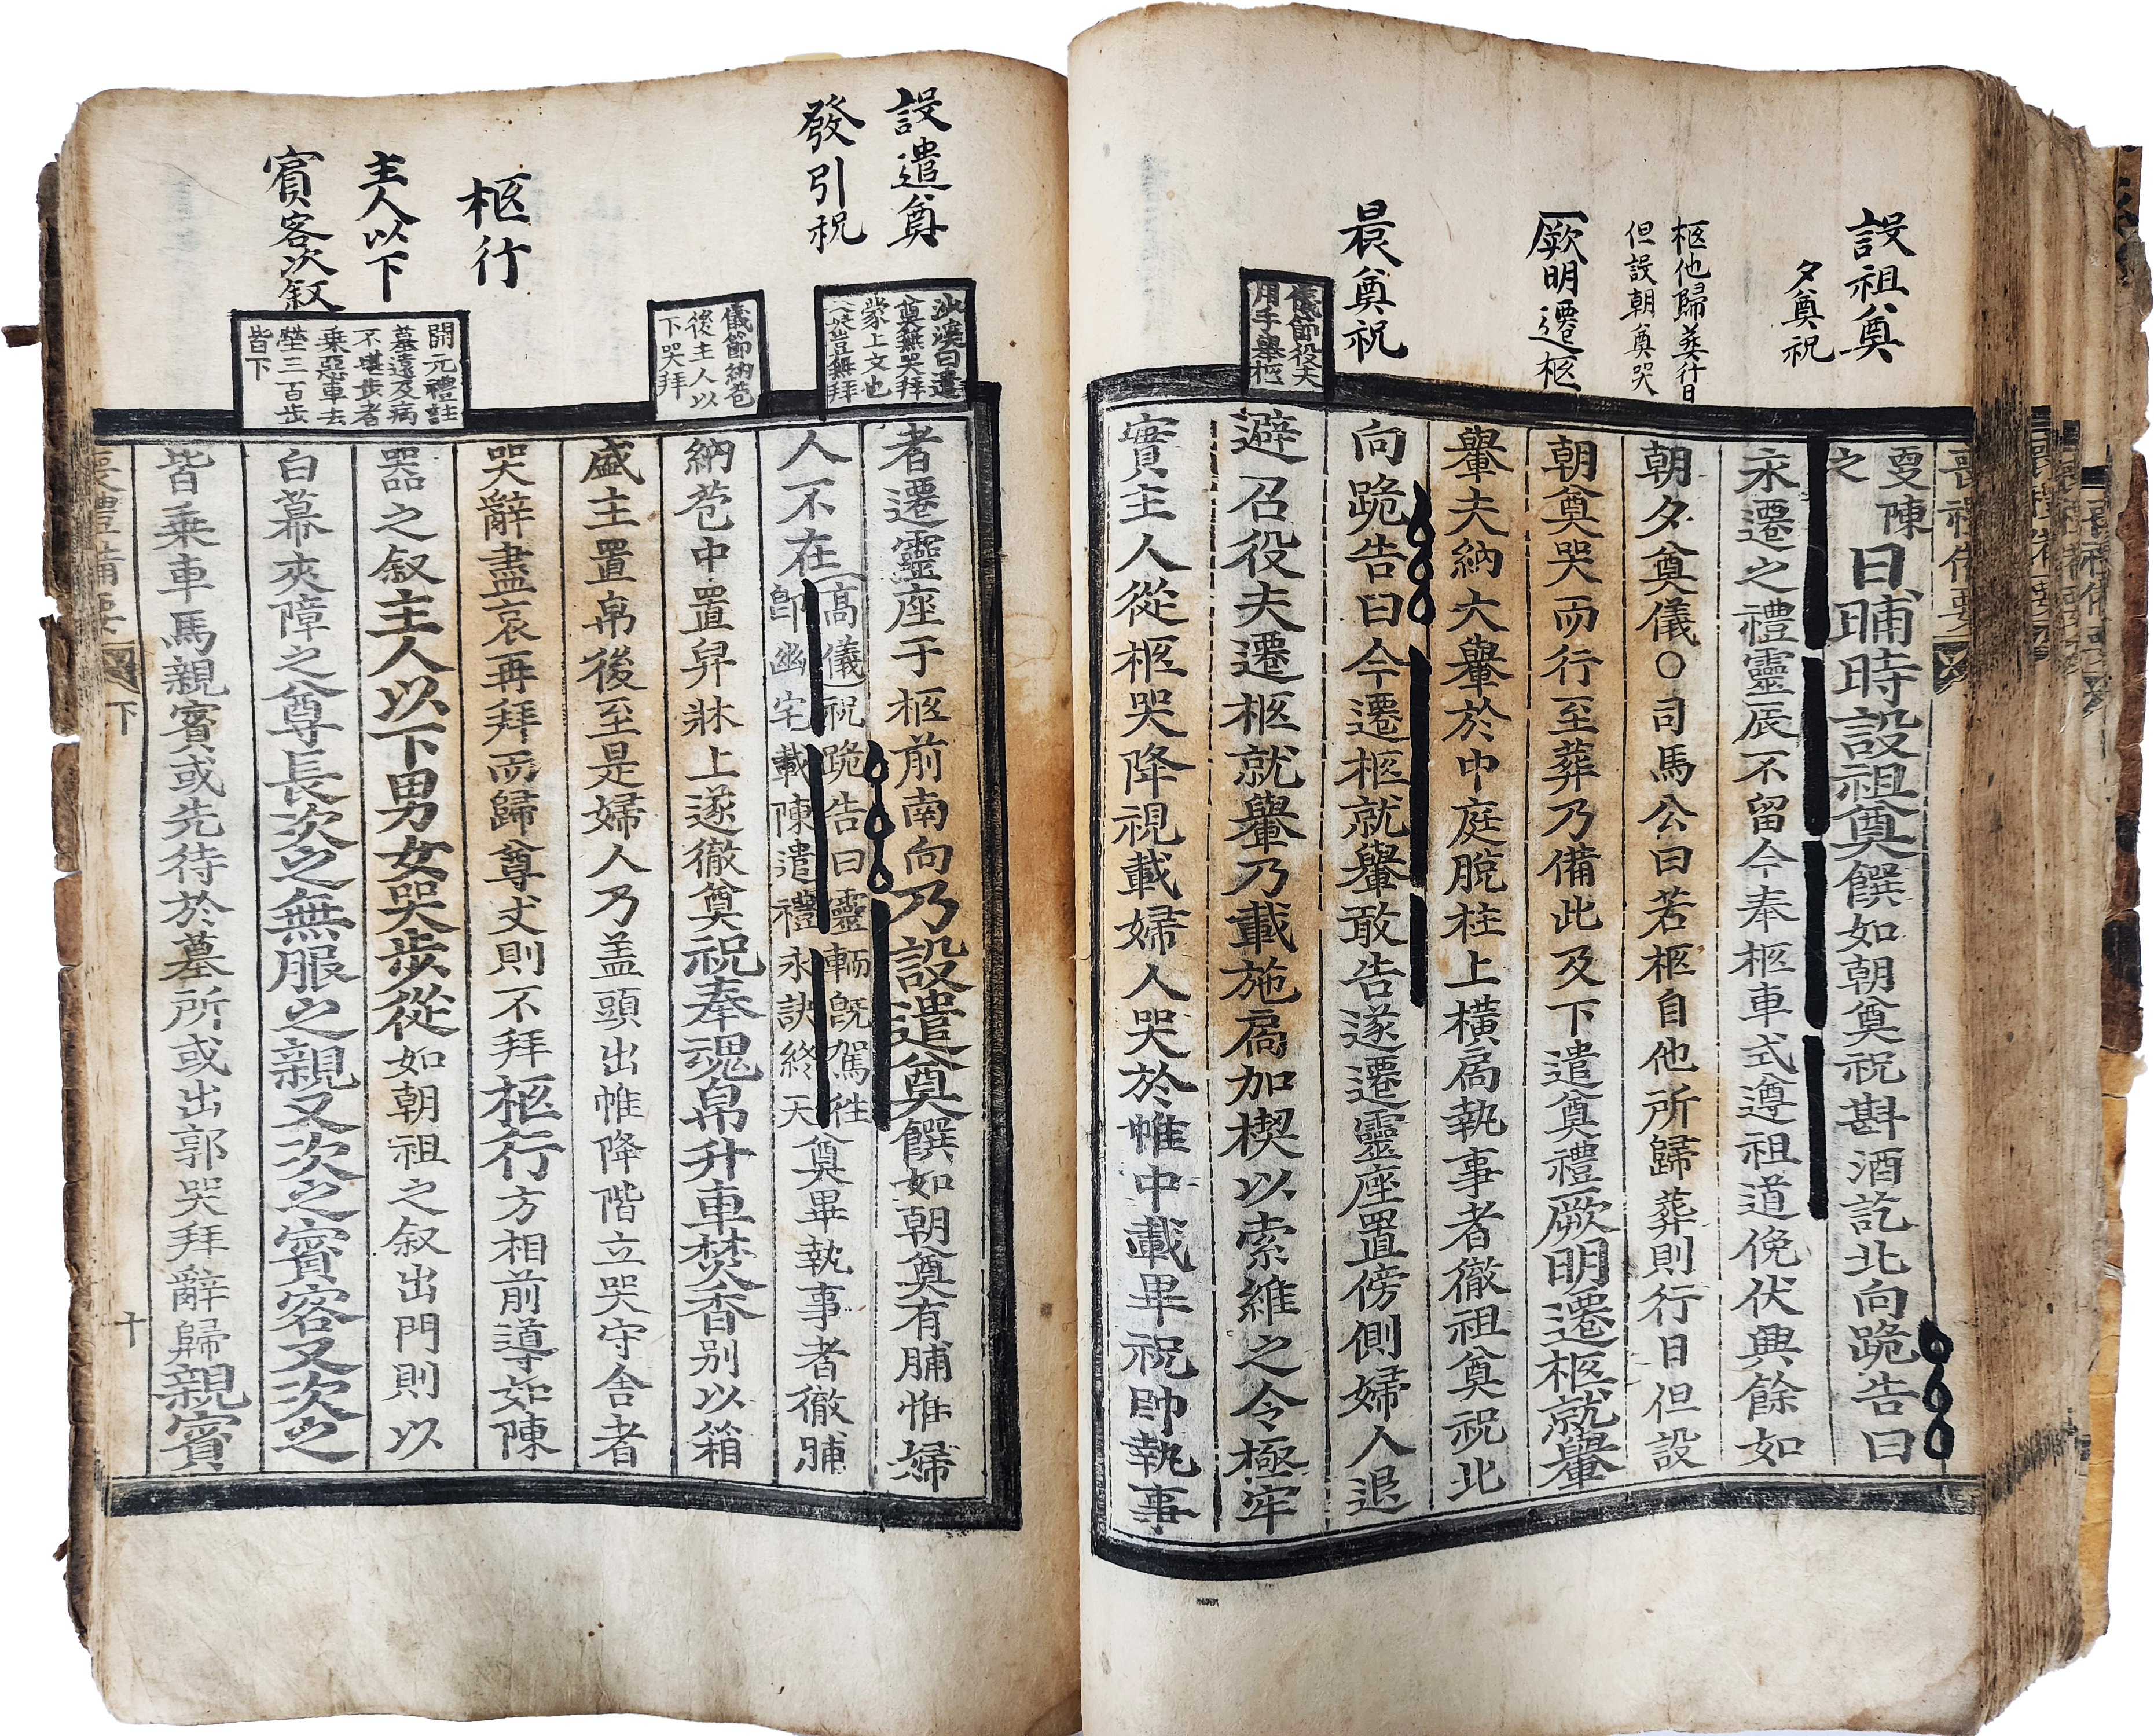 設祖奠
夕奠祝
柩他歸葬行日
但設朝奠哭
厥明遷柩
晨奠祝
儀節役夫
用手舉柩
喪禮備要
更陳
之
日晡時設祖奠饌如朝奠祝斟酒訖北向跪告曰
永遷之禮靈辰不留今奉柩車式遵祖道俛伏興餘如
朝夕奠儀○司馬公曰若柩自他所歸葬則行日但設
朝奠哭而行至葬乃備此及下遣奠禮厥明遷柩就轝
轝夫納大轝於中庭脫柱上橫扃執事者徹祖奠祝北
向跪告曰今遷柩就轝敢告遂遷靈座置傍側婦人退
避召役夫遷柩就轝乃載施扃加楔以索維之令極牢
實主人從柩哭降視載婦人哭於帷中載畢祝帥執事
設遣奠
發引祝
柩行
主人以下
賓客次叙
沙溪曰遣
奠無哭拜
蒙上文也
豈無拜
儀節納苞
後主人以
下哭拜
開元禮註
墓遠及病
不堪步者
乗惡車去
塋三百步
皆下
者遷靈座于柩前南向乃設遣奠饌如朝奠有脯惟婦
人不在
高儀祝跪告曰靈輀旣駕徃
卽幽宅載陳遣禮永訣終天
奠畢執事者徹脯
納苞中置舁牀上遂徹奠祝奉魂帛升車焚香別以箱
盛主置帛後至是婦人乃盖頭出帷降階立哭守舍者
哭辭盡哀再拜而歸尊丈則不拜柩行方相前導如陳
器之叙主人以下男女哭步從如朝祖之叙出門則以
白幕夾障之尊長次之無服之親又次之賓客又次之
皆乗車馬親賓或先待於墓所或出郭哭拜辭歸親賓
喪禮備要
下
十